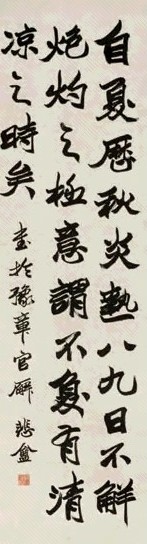 自夏歷秋炎熱八九日不解
炮灼之極意謂不復有清
涼之時矣
書於豫章官廨 悲盦